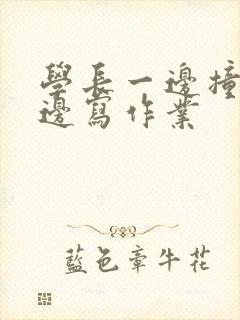 學長一邊撞
邊寫作業
藍色牽牛花